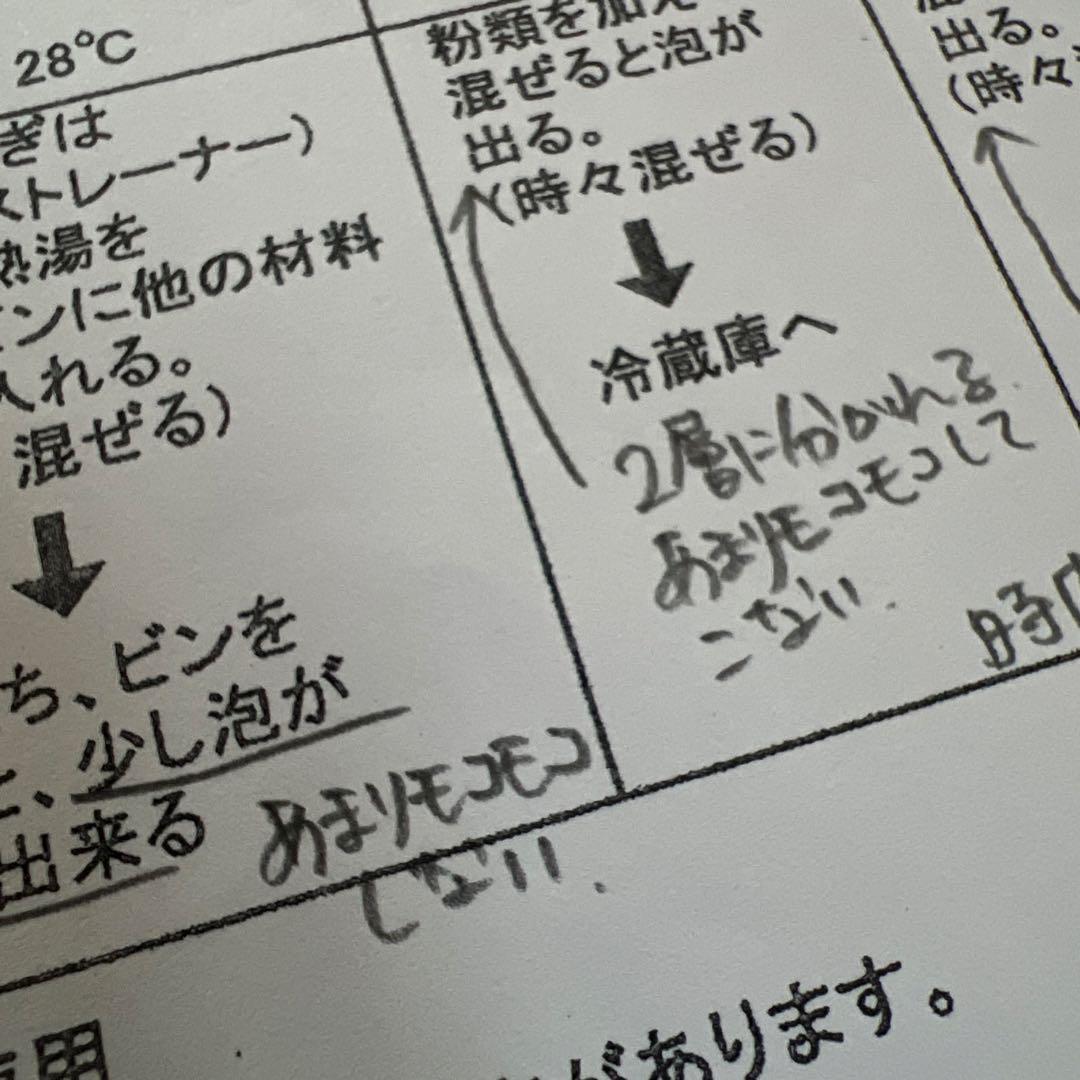 28℃
ぎは
ストレーナー)
熱湯を
ンに他の材料
入れる。
混ぜる)
ち、ビンを
少し泡が
出来る
あまりモコモコ
しない.
粉類を加え
混ぜると泡が
出る。
(時々混ぜる)
冷蔵庫へ
2層に分かれる.
あまりモコモコして
こない.
出る。
(時々
時
があります。